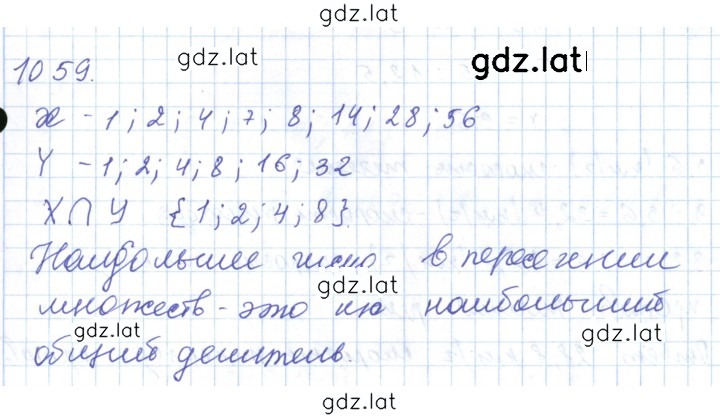 gdz.lat
1059.
gdz.lat
gdz.lat
X - 1; 2; 4; 7; 8; 14; 28; 56
Y - 1; 2; 4; 8; 16; 32
X ∩ Y {1; 2; 4; 8}.
Наибольшее число в пересечении
gdz.lat
множеств - это их наибольший
gdz.lat
gdz.lat
общий делитель.
gdz.lat